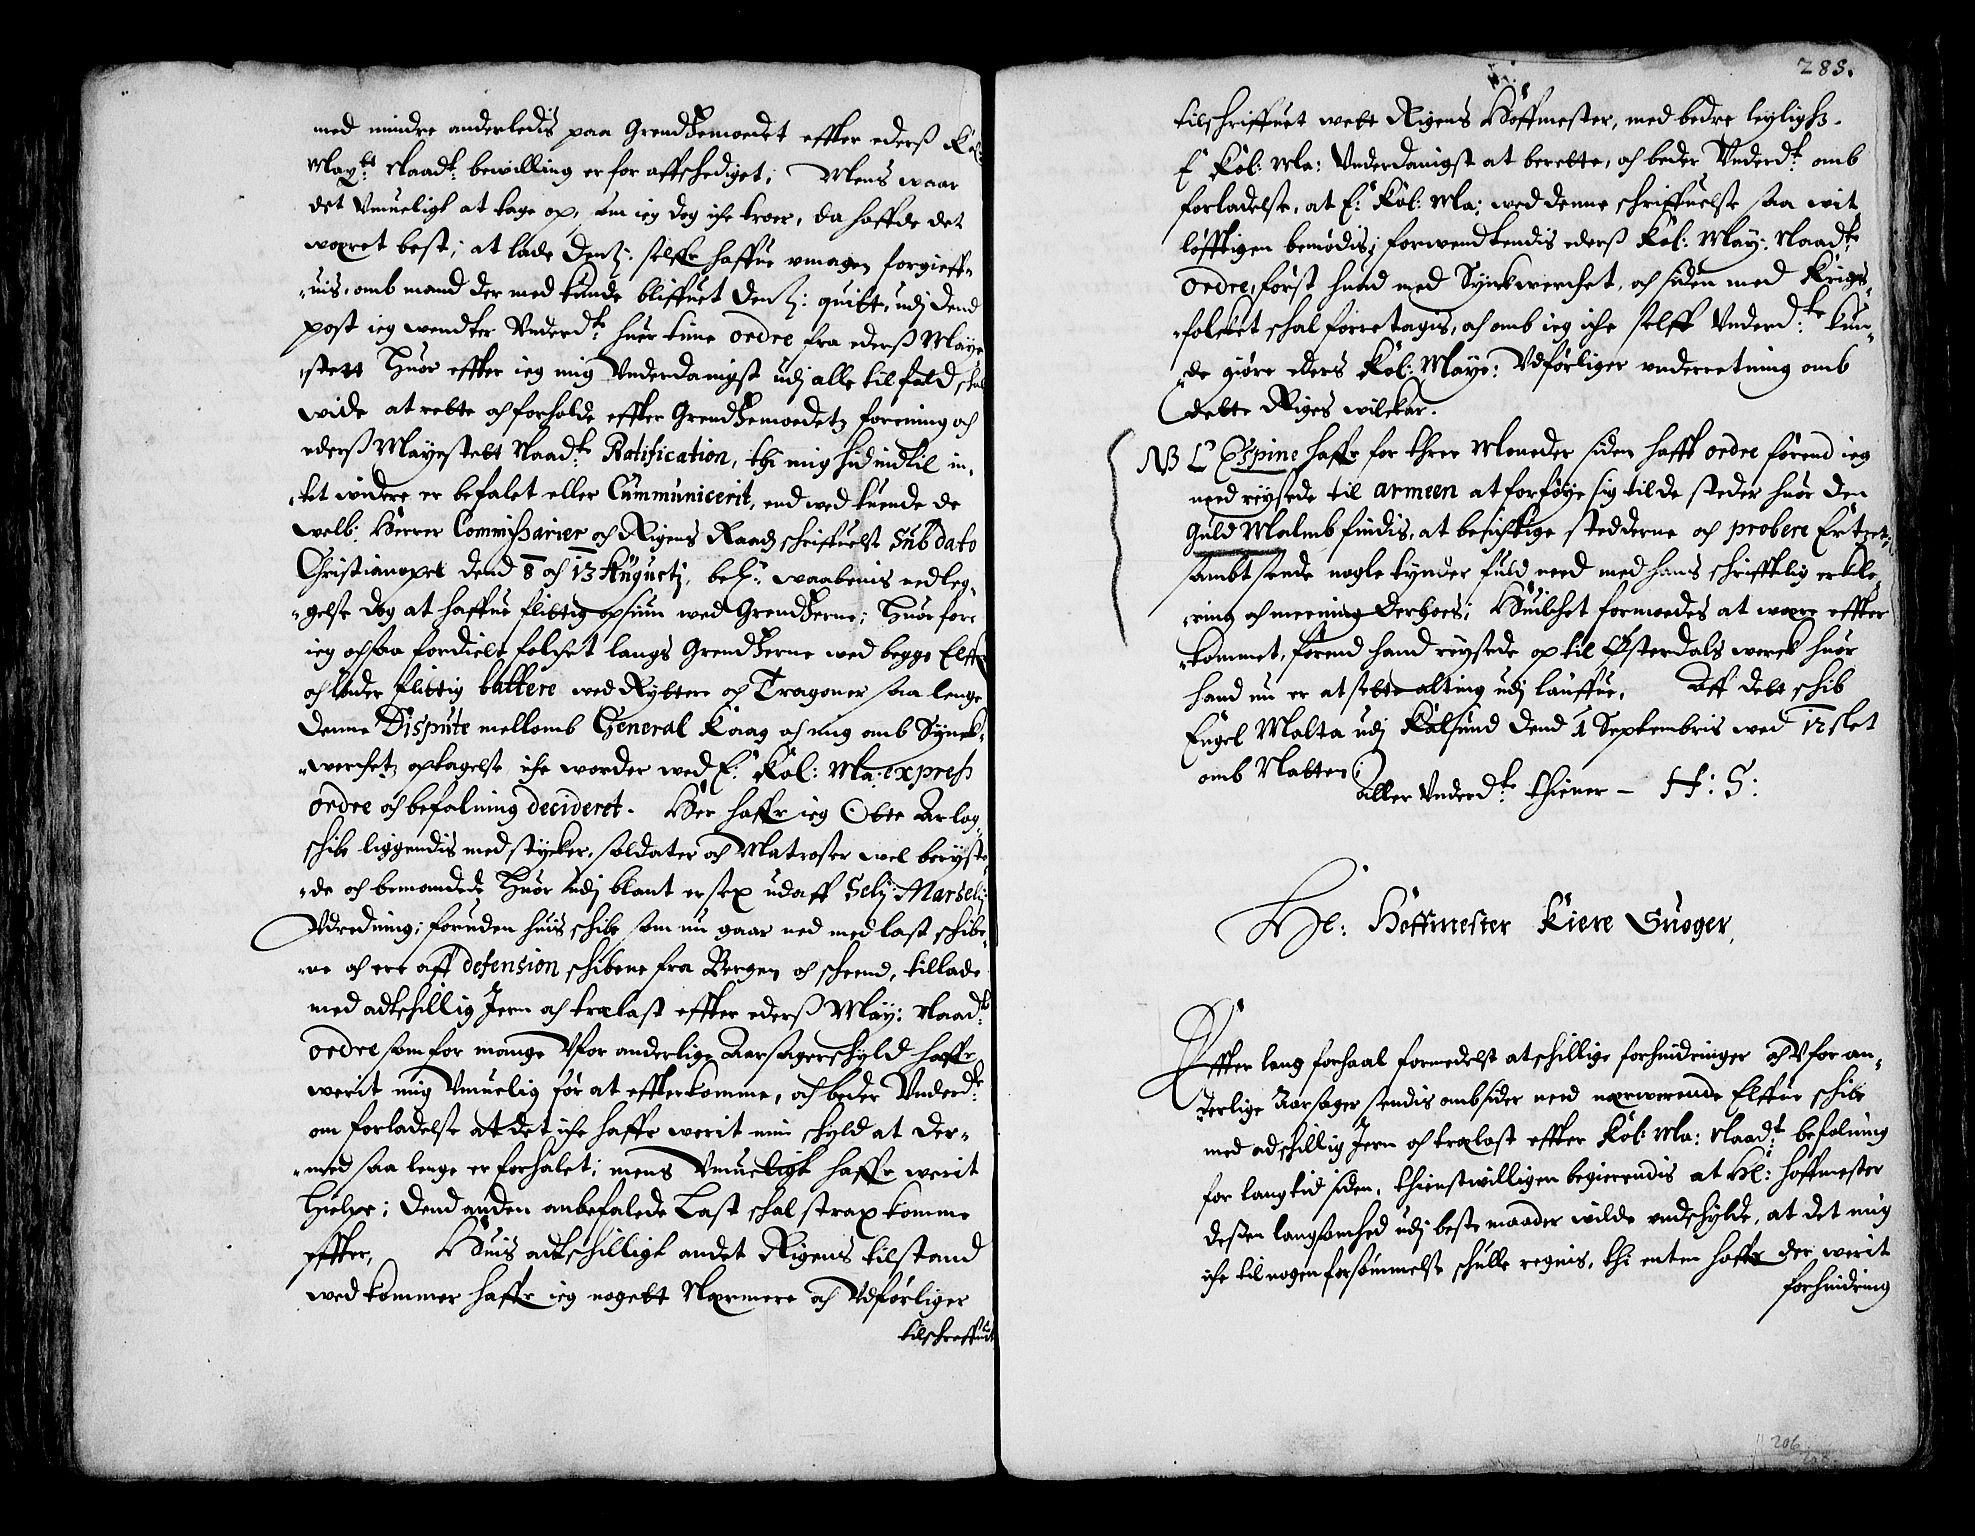 med mindre anderledis paa Grendtzemoedet effter ederß Kol:
Maytz Naadt: bewilling er for affschediget; Mens waar
det Vmueligt at tage op, som ieg dog iche troer, da haffde det
wæret best; at lade denß: selffr haffue vmagen forgieff-
-uis, omb mand der med kunde bliffuet denß: quitt, udj dend
post ieg wendter Vnderdt: huer time ordre fra ederß Maye
-stett Huor effter ieg mig Vnderdanigst udj alle tilfald schal
wide at rette och forholde effter Grendtzemoedetz forening och
ederß Mayestett Naadte Ratification, thi mig hid indtil in-
-tet widere er befalet eller Cummunicerit, end wed tuende de
welb: Herrer Commissarier och Rigens Raadz schriffuelse Sub dato
Christianopel dend 8 och 13 Augustj, bel: waabenis nedleg-
-gelse dog at haffue flittig opsiun wed Grendtzerne; Huorfore
ieg ochsaa fordielt folchet langs Grendtzerne wed begge Elffue
och lader flittig battere wed Ryttere och Dragoner saa lenge
denne Dispute mellomb General Kaag och mig omb Synck-
-werchetz optagelse iche worder wed E: Kol: Ma: express
ordre och befalning decideret. Her haffr ieg Otte Arlog
schibe liggendis med stycker, soldater och Matroser wel beryste
-de och bemandede Huor udj blant er sex udaff Selj Marselj
Vdredning; foruden huis schibe som nu gaar ned med last schibe-
-ne och ere aff defension schibene fra Bergen och scheend, tillade
med adtschillig Jern och træ last effter ederß May: Naadte
ordre som for mange Vfor anderlige Aarsager schyld haffr
werit mig Vmuelig før at effterkomme, och beder Vnderdte:
om forladelse at det iche haffr werit min schyld at der-
-med saa lenge er forhalet; mens Vmueligt haffr werit
hielpe; dend anden anbefalede Last schal strax komme
effter, Huis adtschilligt andet Rigens tilstand
wed kommer haffr ieg nogett Nærmere och Vdførliger
tilschreffuit
285.
tilschriffuet wett Rigens Hoffmester, med bedre leyligh.
E Kol: Ma: Vnderdanigst at berette, och beder Vnderdt: omb
forladelse, at E: Kol: Ma: wed denne schriffuelse saa wit
løfftigen bemødis; forwendtendis ederß Kol: May: Naadte
Ordre, først huad med Synckwerchet, och siden med Krigs-
-folcket schal forretagis, och omb ieg iche selff Vnderd:te kun-
-de giøre eders Kol: Maye: Vdførliger vnderretning omb
dette Riges wilckar.
NB L'Espine haffr for threr Moneder siden hafft ordre førend ieg
need reysede til armeen at forføye sig til de steder huor den
Guld Malmb findis, at besichtige stedderne och probere Ertzet;
sambt sende nogle tynder fuld need med hans schrifftlig erkle-
-ring och meening derhoes; Huilchet formoedes at være effter
-kommet, førend hand reysede op til Østerdals werck huor
hand nu er at sette alting udj lauffue. Aff dett schib
Engel Malta udj Kalsund dend 1 Septembris wed 12 slet
omb Natten.
Aller Vnderdte thiener – H: S:
Hl: Hoffmester Kiere Suoger,
Effter lang forhaal formedelst atschillige forhindringer och Vfor an-
derlige Aarsager sendis ombsider need nærwerende Elffue schibe
med adschillig Jern och træ last effter Kol: Ma: Naadt befalning
for lang tid siden, thienstwilligen begierendis at Hl: hoffmester
deßen langsomhed udj beste maader wilde vndschylde, at det mig
iche til nogen forsømmelse schulle regnis, thi enten haffr der werit
forhindring
206